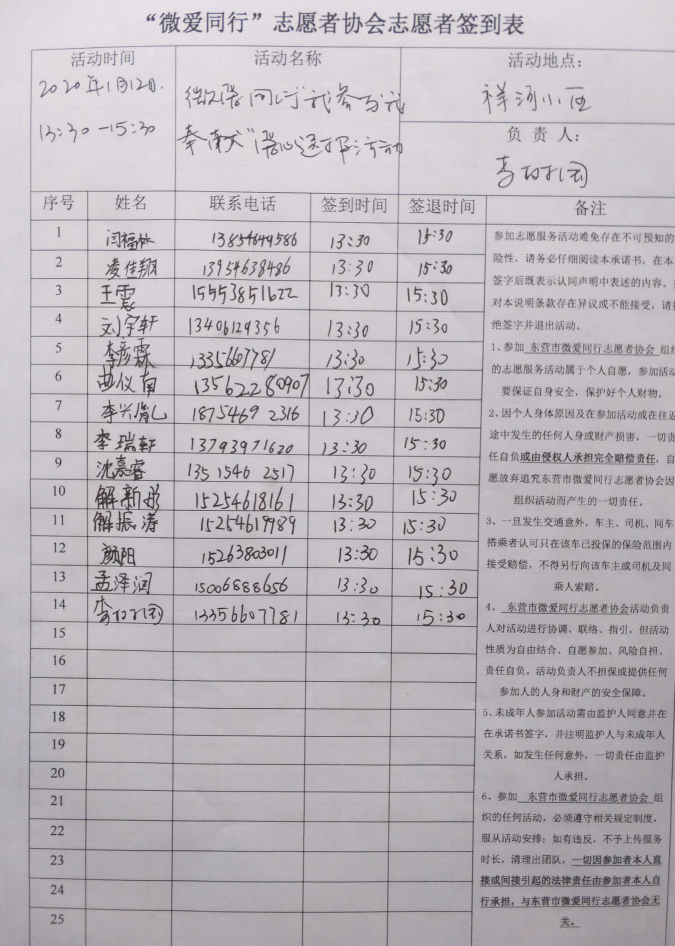 “微爱同行”志愿者协会志愿者签到表
活动时间
2020年1月12日.
13:30-15:30
活动名称
微爱同行"我参与我
奉献"爱心送福活动
活动地点:
祥河小区
负责人:
序号 姓名 联系电话 签到时间 签退时间 备注
1 闫福林 13854649586 13:30 15:30
2 凌佳翔 13954638486 13:30 15:30
3 王震 15553851622 13:30 15:30
4 刘宇轩 13406129356 13:30 15:30
5 李彦霖 1335607781 13:30 15:30
6 曲仪南 13562280907 13:30 15:30
7 李兴胤 1875469 2316 13:30 15:30
8 李瑞轩 13793971620 13:30 15:30
9 沈嘉睿 1351546 2517 13:30 15:30
10 解新彤 15254618161 13:30 15:30
11 解振涛 15254619989 13:30 15:30
12 颜阳 15263803011 13:30 15:30
13 孟泽润 15006888656 13:30 15:30
14 13356607781 13:30 15:30
15
16
17
18
19
20
21
22
23
24
25
参加志愿服务活动难免存在不可预知的
险性,请务必仔细阅读本承诺书,在本
签字后既表示认同声明中表述的内容。
对本说明条款存在异议或不能接受,请拒
绝签字并退出活动。
1、参加 东营市微爱同行志愿者协会 组织
的志愿服务活动属于个人自愿,参加活动
要保证自身安全,保护好个人财物。
2、因个人身体原因及在参加活动或在往返
途中发生的任何人身或财产损害,一切责
任自负或由侵权人承担完全赔偿责任,自
愿放弃追究东营市微爱同行志愿者协会因
组织活动而产生的一切责任。
3、一旦发生交通意外,车主、司机、同车
搭乘者认可只在该车已投保的保险范围内
接受赔偿,不得另行向该车主或司机及同
乘人索赔。
4、 东营市微爱同行志愿者协会活动负责
人对活动进行协调、联络、指引,但活动
性质为自由结合、自愿参加、风险自担、
责任自负。活动负责人不担保或提供任何
参加人的人身和财产的安全保障。
5、未成年人参加活动需由监护人同意并在
在承诺书签字,并注明监护人与未成年人
关系,如发生任何意外,一切责任由监护
人承担。
6、参加 东营市微爱同行志愿者协会 组
织的任何活动,必须遵守相关规定制度,
服从活动安排;如有违反,不予上传服务
时长,清理出团队,一切因参加者本人直
接或间接引起的法律责任由参加者本人自
行承担,与东营市微爱同行志愿者协会无
关。